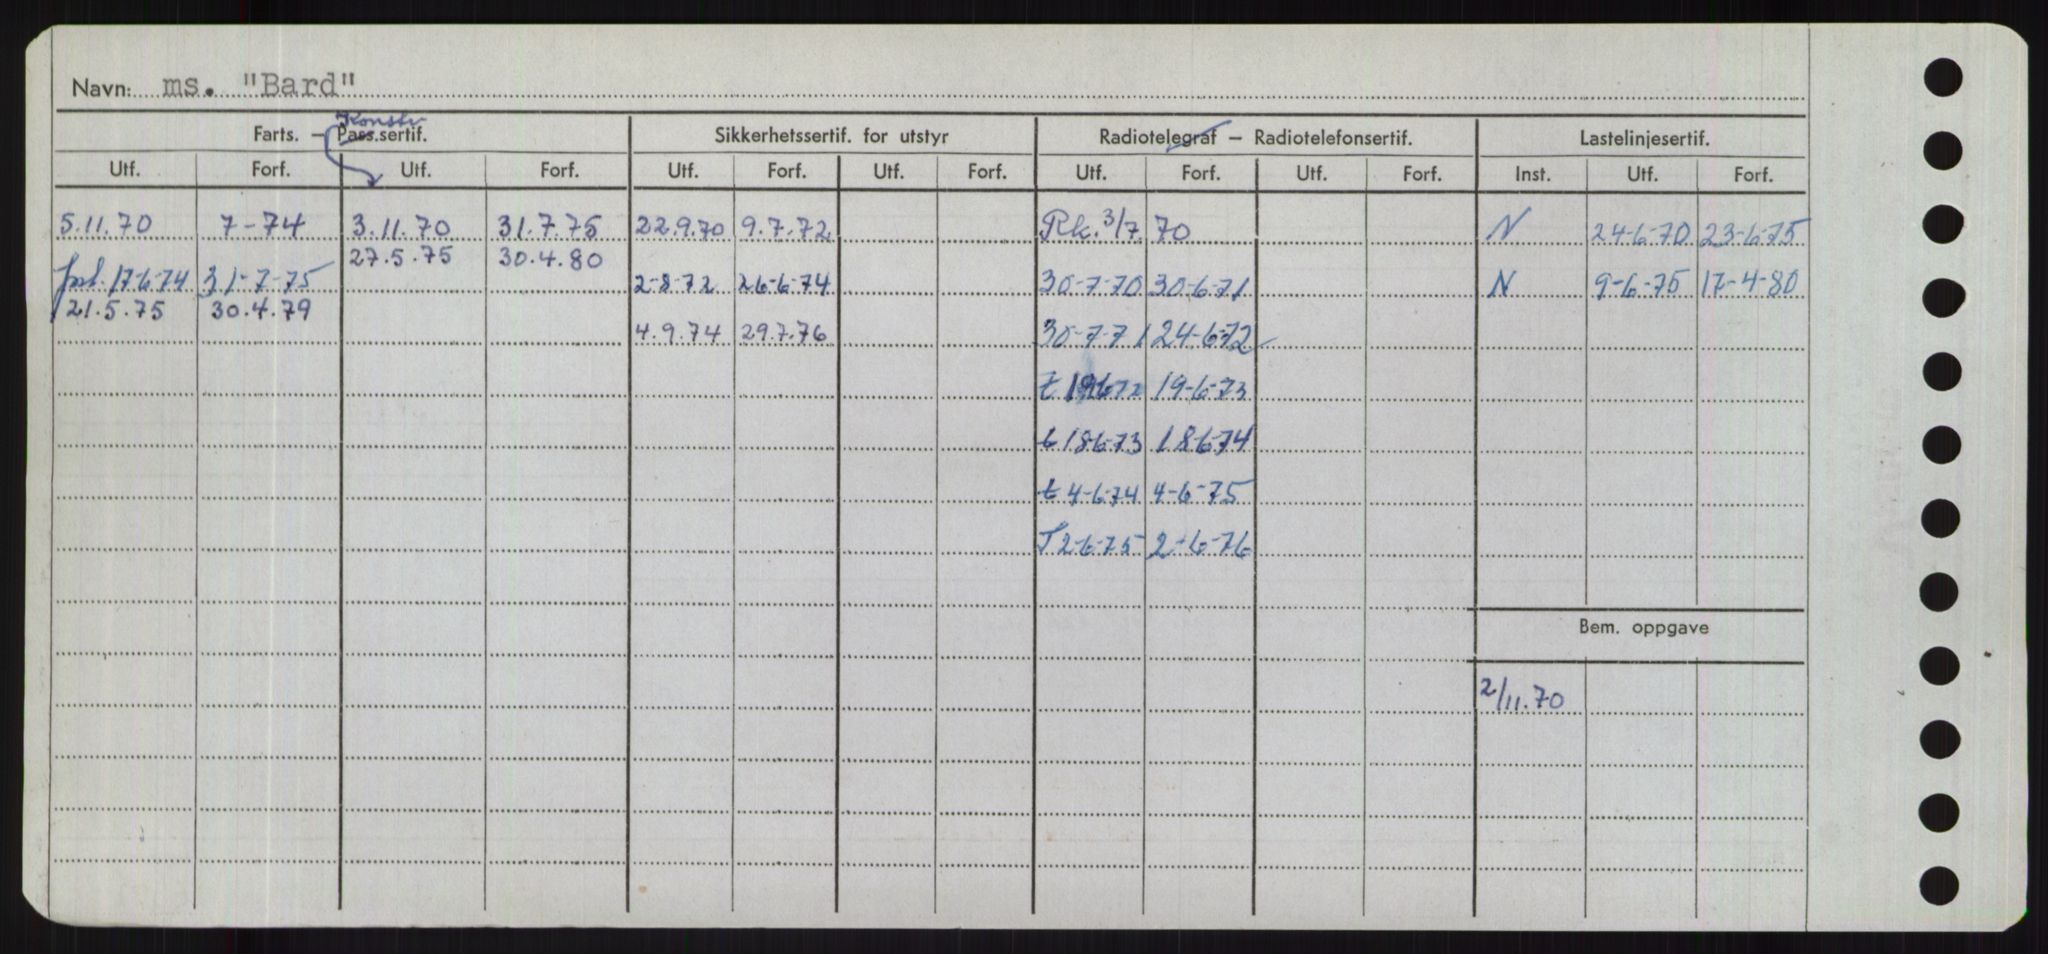 Navn: ms. "Bard"
Konstr
Farts. — Pass.sertif. Sikkerhetssertif. for utstyr Radiotelegraf — Radiotelefonsertif. Lastelinjesertif.
Utf. Forf. Utf. Forf. Utf. Forf. Utf. Forf. Utf. Forf. Utf. Forf. Inst. Utf. Forf.
5.11.70 7-74 3.11.70 31.7.75 22.9.70 9.7.72 Rk. 3/7 70 N 24-6-70 23-6-75
27.5.75 30.4.80
forl. 17-6-74 31-7-75 2-8-72 26-6-74 30-7-70 30-6-71 N 9-6-75 17-4-80
21.5.75 30.4.79
4.9.74 29.7.76 30-7-71 24-6-72
t 19672 19-6-73
t 18-6-73 18-6-74
t 4-6-74 4-6-75
T 2-6-75 2-6-76
Bem. oppgave
2/11.70